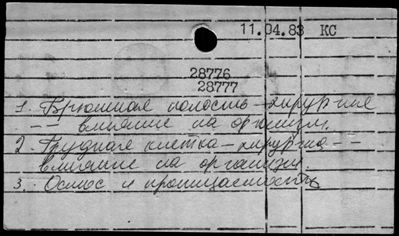 11.04.83 КС
28776
28777
1. Брюшная полость - хирургия
- - влияние на организм.
2. Грудная клетка - хирургия - -
влияние на организм.
3. Осмос и проницаемость